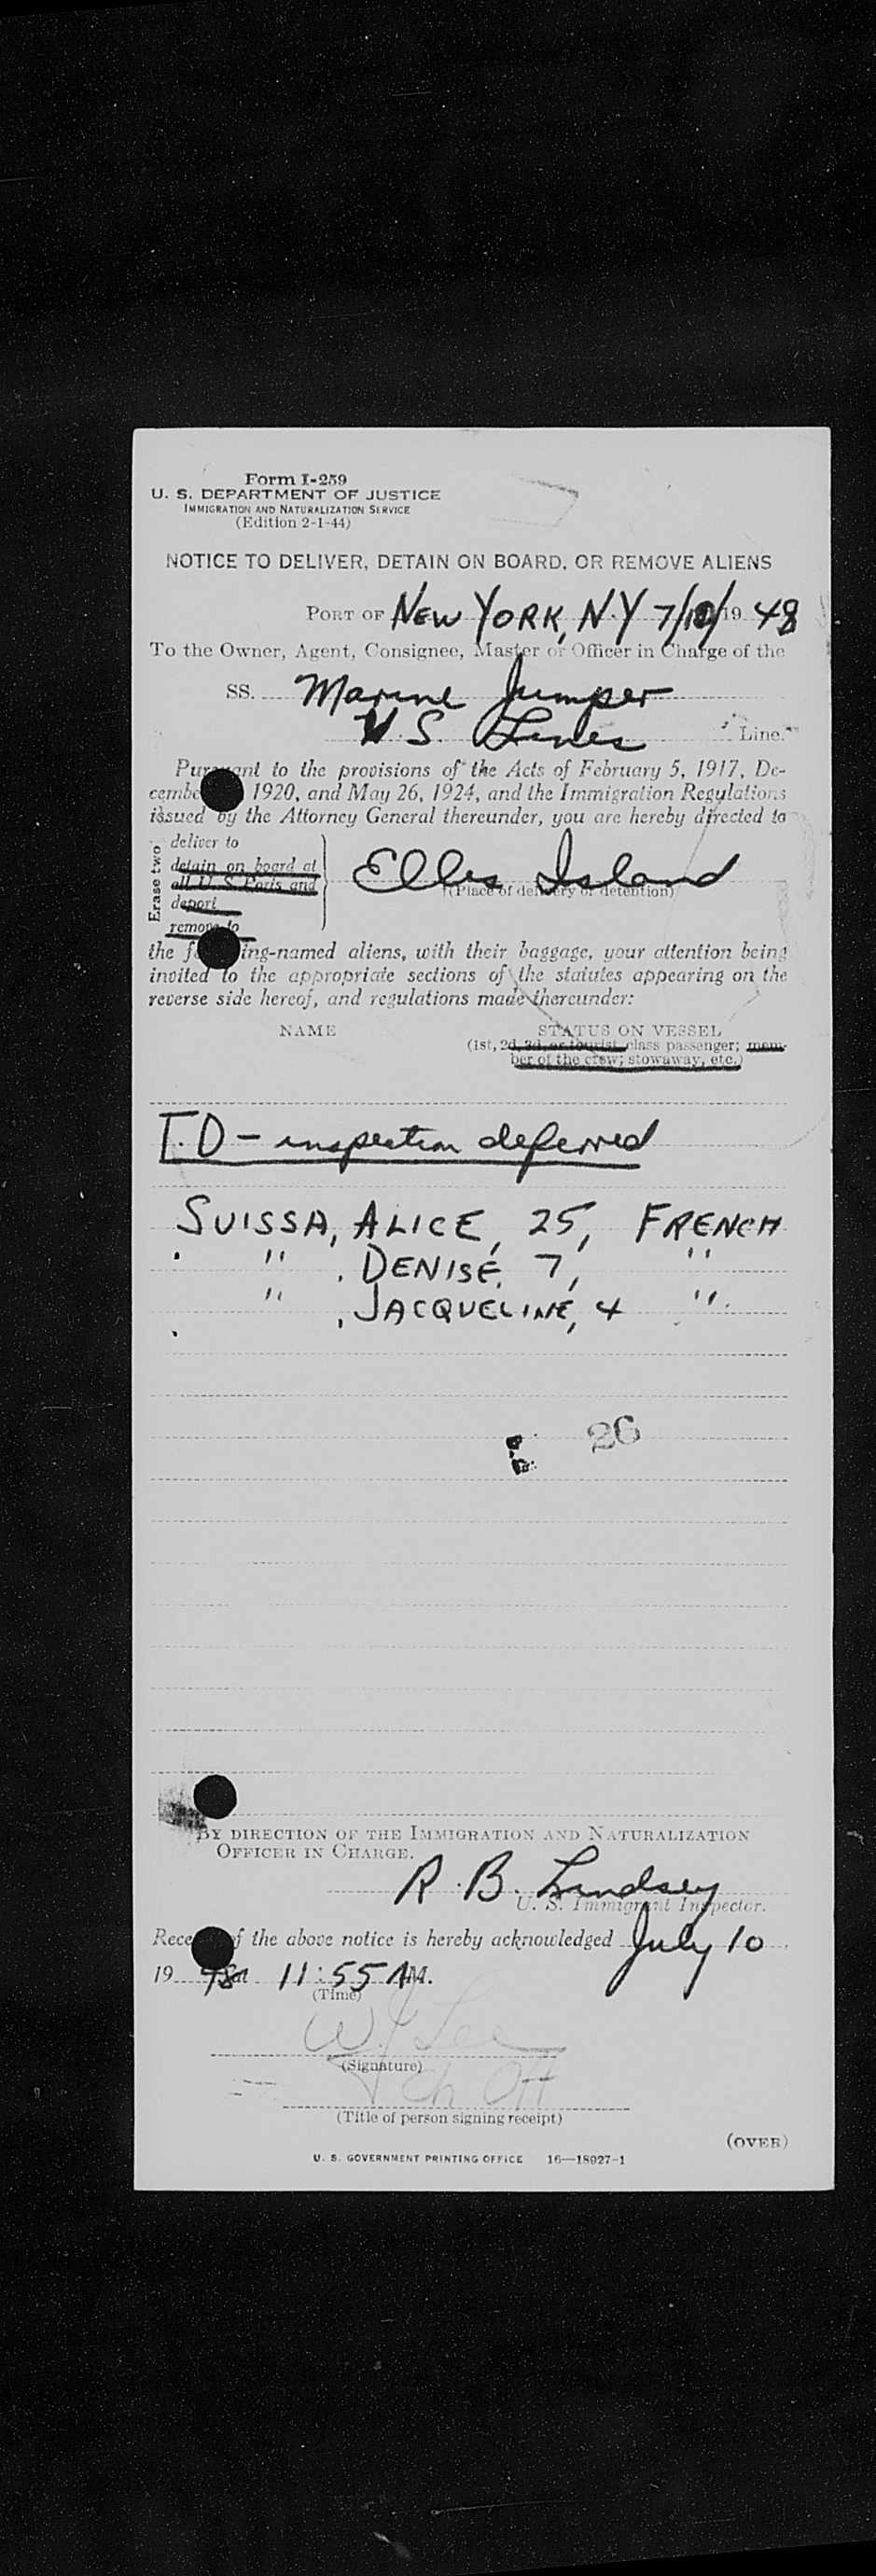 Form I-259
U. S. DEPARTMENT OF JUSTICE
IMMIGRATION AND NATURALIZATION SERVICE
(Edition 2-1-44)
NOTICE TO DELIVER, DETAIN ON BOARD, OR REMOVE ALIENS
PORT OF NEW YORK, N.Y 7/10/19 48
To the Owner, Agent, Consignee, Master or Officer in Charge of the
SS. Marine Jumper
U.S. Lines Line.
Pursuant to the provisions of the Acts of February 5, 1917, De-
cembe 1920, and May 26, 1924, and the Immigration Regulations
issued by the Attorney General thereunder, you are hereby directed to
Erase two
deliver to
detain on board at
all U. S. Ports and
deport
remove to
Ellis Island
(Place of delivery or detention)
the f ing-named aliens, with their baggage, your attention being
invited to the appropriate sections of the statutes appearing on the
reverse side hereof, and regulations made thereunder:
NAME STATUS ON VESSEL
(1st, 2d, 3d, or tourist class passenger; mem-
ber of the crew; stowaway, etc.)
I.D - inspection deferred
SUISSA, ALICE, 25, FRENCH
" , DENISE, 7, "
" , JACQUELINE, 4 "
26
BY DIRECTION OF THE IMMIGRATION AND NATURALIZATION
OFFICER IN CHARGE.
R. B. Lindsey
U. S. Immigrant Inspector.
Rece of the above notice is hereby acknowledged July 10
19 48 at 11:55 AM.
(Time)
W J Lee
(Signature)
Ch Off
(Title of person signing receipt)
(OVER)
U. S. GOVERNMENT PRINTING OFFICE 16—18927-1